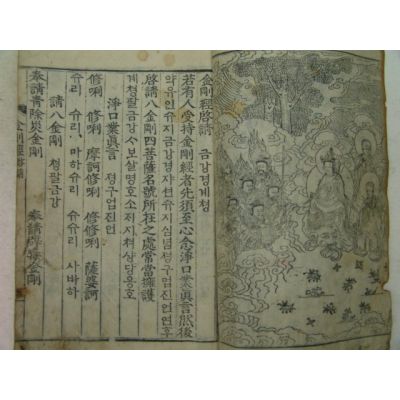 金剛經啓請 금강경계쳥
若有人受持金剛經者先須至心念淨口業眞言然後
약유인슈지금강경쟈션슈지심념졍구업진언연후
啓請八金剛四菩薩名號所在之處常當擁護
계쳥팔금강ᄉ보살명호소ᄌ지쳐상당옹호
淨口業眞言 졍구업진언
修唎 修唎 摩訶修唎 修修唎 薩婆訶
슈리 슈리 마하슈리 슈슈리 사바하
請八金剛 쳥팔금강
奉請靑除災金剛 奉請辟毒金剛
金剛經啓請